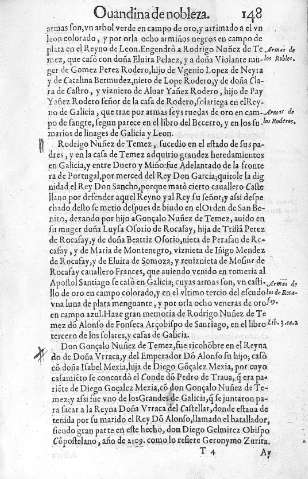 Ouandina de nobleza. 148
armas son, vn arbol verde en campo de oro, y arrimado a el vn
leon colorado, y por orla ocho armiños negros en campo de
plata en el Reyno de Leon. Engendrò a Rodrigo Nuñez de Te
mez, que casó con doña Eluira Pelaez, y a doña Violante
ger de Gomez Perez Rodero, hijo de Vgenio Lopez de Neyra
y de Catalina Bermudez, nieto de Lope Rodero, y de doña Cla
ra de Castro, y vizniero de Aluar Yañez Rodero, hijo de Pay
Yañez Rodero señor de la casa de Rodero, solariega en el Rey-
no de Galicia, que trae por armas seys ruedas de oro en cam-
po de sangre, segun parece en el libro del Bezerro, y en los
marios de linages de Galicia y Leon.
Armas de los Roderos.
Rodrigo Nuñez de Temez, sucedio en el estado de sus pa-
dres, y en la casa de Temez adquirio grandez heredamientos
en Galicia, entre Duero y Miño: fue Adelantado de la fronte
ra de Portugal, por merced del Rey Don Garcia: quitole la dig
nidad el Rey Don Sancho, porque matò cierto cauallero Caste
llano por defender aquel Reyno y al Rey su señor, y assi despe
chado desto se metio despues de biudo en el Orden de San Be-
nito, dexando por hijo a Gonçalo Nuñez de Temez, auido en
su muger doña Luysa Osorio de Rocafay, hija de Tristã Perez
de Rocafay, y de doña Beatriz Osorio, nieta de Persian de Ro-
cafay, y de Maria de Montenegro, viznieta de Iñigo Mendez
de Rocafay, y de Eluira de Somoza, y reuiznieta de Mosiur de
Rocafay cauallero Frances, que auiendo venido en romeria al
Apostol Santiago se casò en Galicia, cuyas armas son, vn casti-
llo de oro en campo colorado, y en el vltimo tercio del escudo
vna luna de plata menguante, y por orla ocho veneras de oro
en campo azul. Haze gran memoria de Rodrigo Nuñez de Te
mez dõ Alonso de Fonseca Arçobispo de Santiago, en el libro
tercero de los solares, y casas de Galicia.
Don Gonçalo Nuñez de Temez, fue ricohõbre en el Reyna
do de Doña Vrraca, y del Emperador Dõ Alonso su hijo, casò
cõ doña Isabel Mexia, hija de Diego Gõçalez Mexia, por cuyo
casamiento se concordò el Conde dõ Pedro de Traua, q̃ era pa
riẽte de Diego Gonçalez Mexia, cõ don Gonçalo Nuñez de Te-
mez: y assi fue vno de los Grandes de Galicia, q̃ se juntaron pa-
ra sacar a la Reyna Doña Vrraca del Castellar, donde estaua de
tenida por su marido el Rey Dõ Alonso, llamado el batallador,
siendo gran parte en este hecho, don Diego Gelmirez Obispo
Cõpostelano, como lo refiere Geronymo Zurita.
T 4 Ay